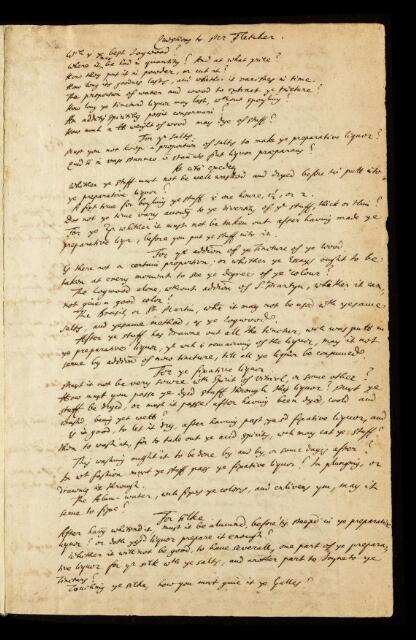 Questions to Mr Fletcher.
Wch is ye best Logwood?
Where is it be had in quantity? And at what price?
How they put it in powder, or cut it?
How long its goodnes lasts, and whether it one in time.
The proportion of water and wood to extract ye tincture?
How long ye tinctured liquor may last, without spoyling?
An addition spirits conservand?
How much a lb weight of wood may dye of stuff?
For ye salts
Must you not keepe a proportion of salts to make ye preparative liquor?
and it in vase it stand liquor preparans?
Whether ye stuff must not be well washed and dryed before tis putt into
ye preparative liquor?
A fixt time for boyling ye stuff, if one houre, or 2.
Dos not ye time vary according to ye diversity of ye stuff, thick or thin?
For ye whether it must not be taken out after having made ye
preparative liqr, before you put ye stuff into it.
For ye addition of ye tincture of ye wood
Is there not a certain proportion, or whether ye Essays ought to be
taken at every moment to see ye degree of ye colour?
The Logwood alone, without addition of St Martyn, whether it can
not give a good color?
The Brasil or St Martin, whether it may not be used with ye same
salts, and ye same method, as ye Logwood?
After ye stuff has drawne out all the tincture, wch was putt in
ye preparative liquor, yt wch is remaining of the liquor, may it not
serve by addition of new tincture, till all ye liquor be consumed
For ye fixative liquor
Must it not be very soure with Spirit of Vitriol, or some other?
How must you passe ye dyed stuffs through this liquor? Must ye
stuff be dryed, or must it passe after having been dyed, cold and
washt being yet wett?
Is it good, to let it dry, after having past ye sd fixative liquor, and
then to wash it, for to take out ye acid spirits, wch may eat ye stuff?
This washing ought it to be done by and by, or some dayes after?
In wt fashion must ye stuff pass ye fixative liquor? In plunging, or
drawing it through.
The Alum-water, wch fixes ye colors, and enlivens ym, may it
serve to fixe?
For Silke
After having whitened it, must it be alumined, before it's steeped in ye preparative
liquor? or doth ye sd liquor prepare it enough?
Whether it will not be good, to have severall, one part of ye prepara-
tive liquor for ye silk wth ye salts, and another part to joyne to ye
tincture?
Touching ye silke, how you must give it ye Galles?